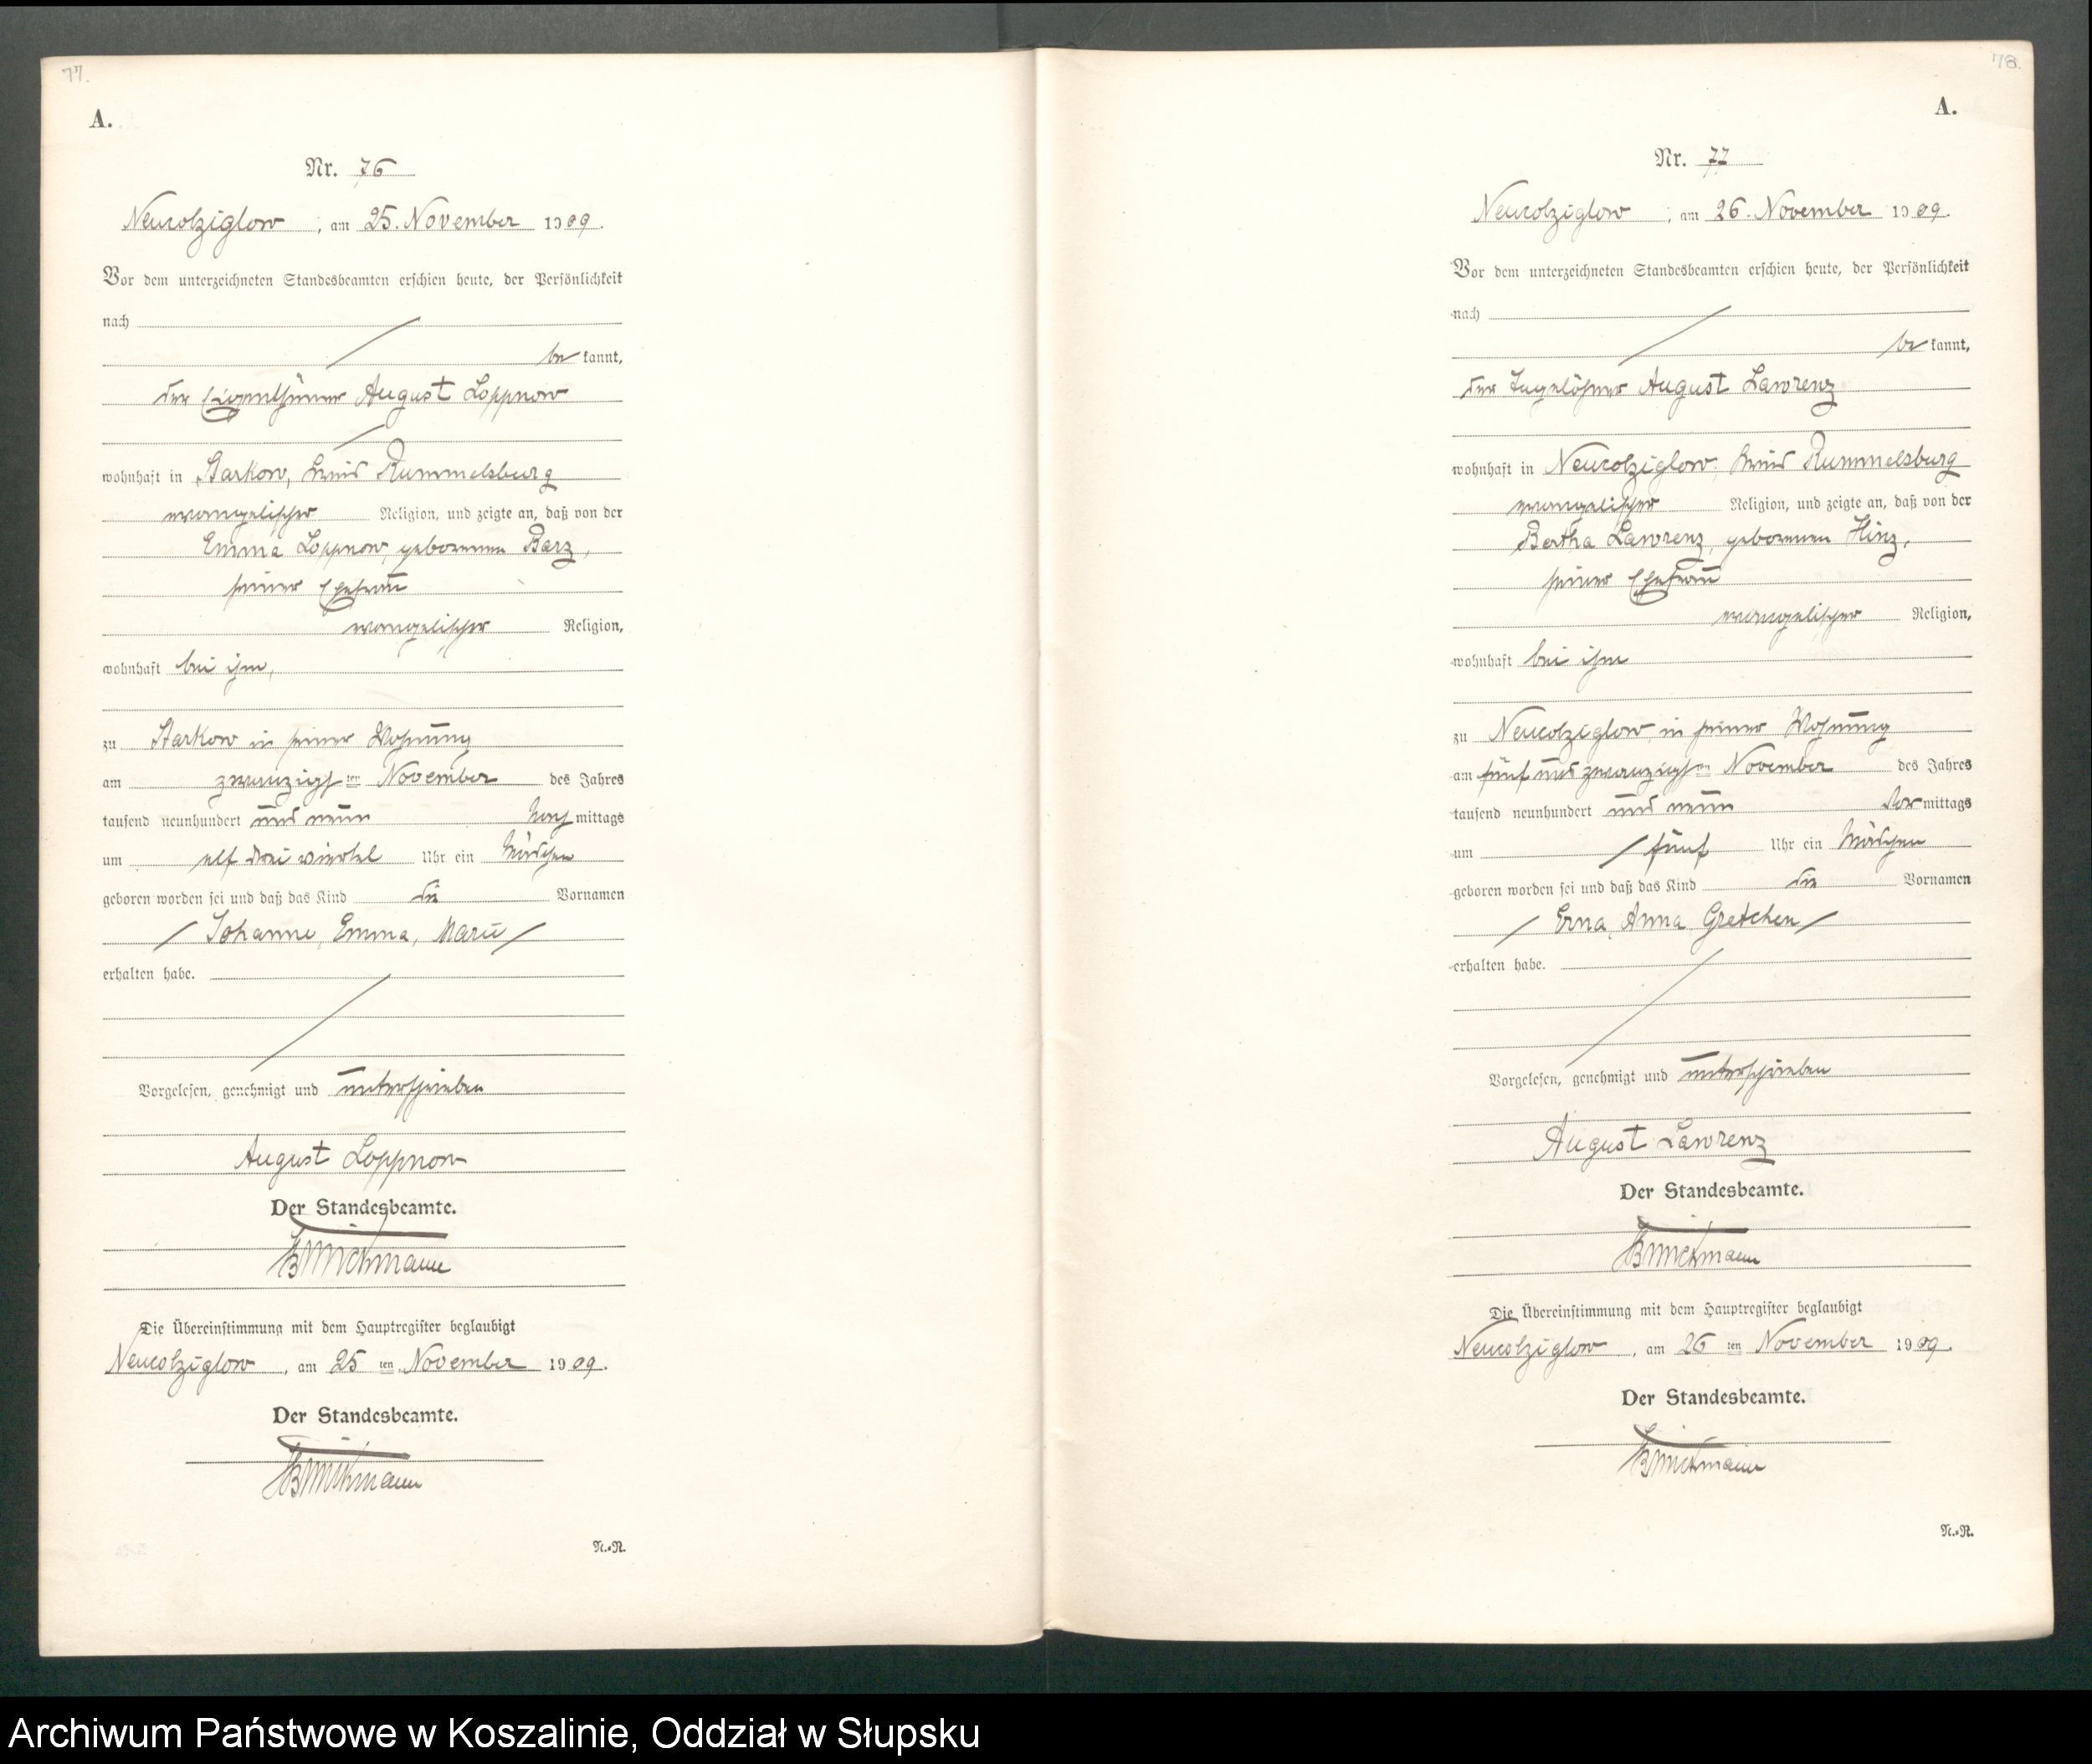 77.
A.
Nr. 76
Neukolziglow, am 25. November 1909.
Vor dem unterzeichneten Standesbeamten erschien heute, der Persönlichkeit
nach
bekannt,
der Eigenthümer August Loppnow
wohnhaft in Starkow, Kreis Rummelsburg
evangelischer Religion, und zeigte an, daß von der
Emma Loppnow, geborenen Barz,
seiner Ehefrau
evangelischer Religion,
wohnhaft bei ihm,
zu Starkow in seiner Wohnung
am zwanzigsten November des Jahres
tausend neunhundert und neun Nachmittags
um elf drei viertel Uhr ein Mädchen
geboren worden sei und daß das Kind die Vornamen
Johanne, Emma, Marie
erhalten habe.
Vorgelesen, genehmigt und unterschrieben
August Loppnow
Der Standesbeamte.
Brückmann
Die Übereinstimmung mit dem Hauptregister beglaubigt
Neukolziglow, am 25ten November 1909.
Der Standesbeamte.
Brückmann
N.-R.
78.
A.
Nr. 77
Neukolziglow, am 26. November 1909.
Vor dem unterzeichneten Standesbeamten erschien heute, der Persönlichkeit
nach
bekannt,
der Tagelöhner August Lawrenz
wohnhaft in Neukolziglow, Kreis Rummelsburg
evangelischer Religion, und zeigte an, daß von der
Bertha Lawrenz, geborenen Hinz,
seiner Ehefrau
evangelischer Religion,
wohnhaft bei ihm
zu Neukolziglow in seiner Wohnung
am fünf und zwanzigsten November des Jahres
tausend neunhundert und neun Vormittags
um fünf Uhr ein Mädchen
geboren worden sei und daß das Kind die Vornamen
Erna, Anna Gretchen
erhalten habe.
Vorgelesen, genehmigt und unterschrieben
August Lawrenz
Der Standesbeamte.
Brückmann
Die Übereinstimmung mit dem Hauptregister beglaubigt
Neukolziglow, am 26ten November 1909.
Der Standesbeamte.
Brückmann
N.-R.
Archiwum Państwowe w Koszalinie, Oddział w Słupsku